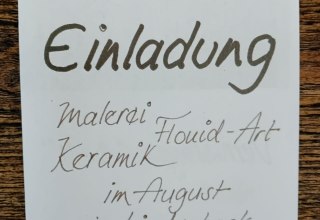 Einladung
Malerei
Flouid-Art
Keramik
im August